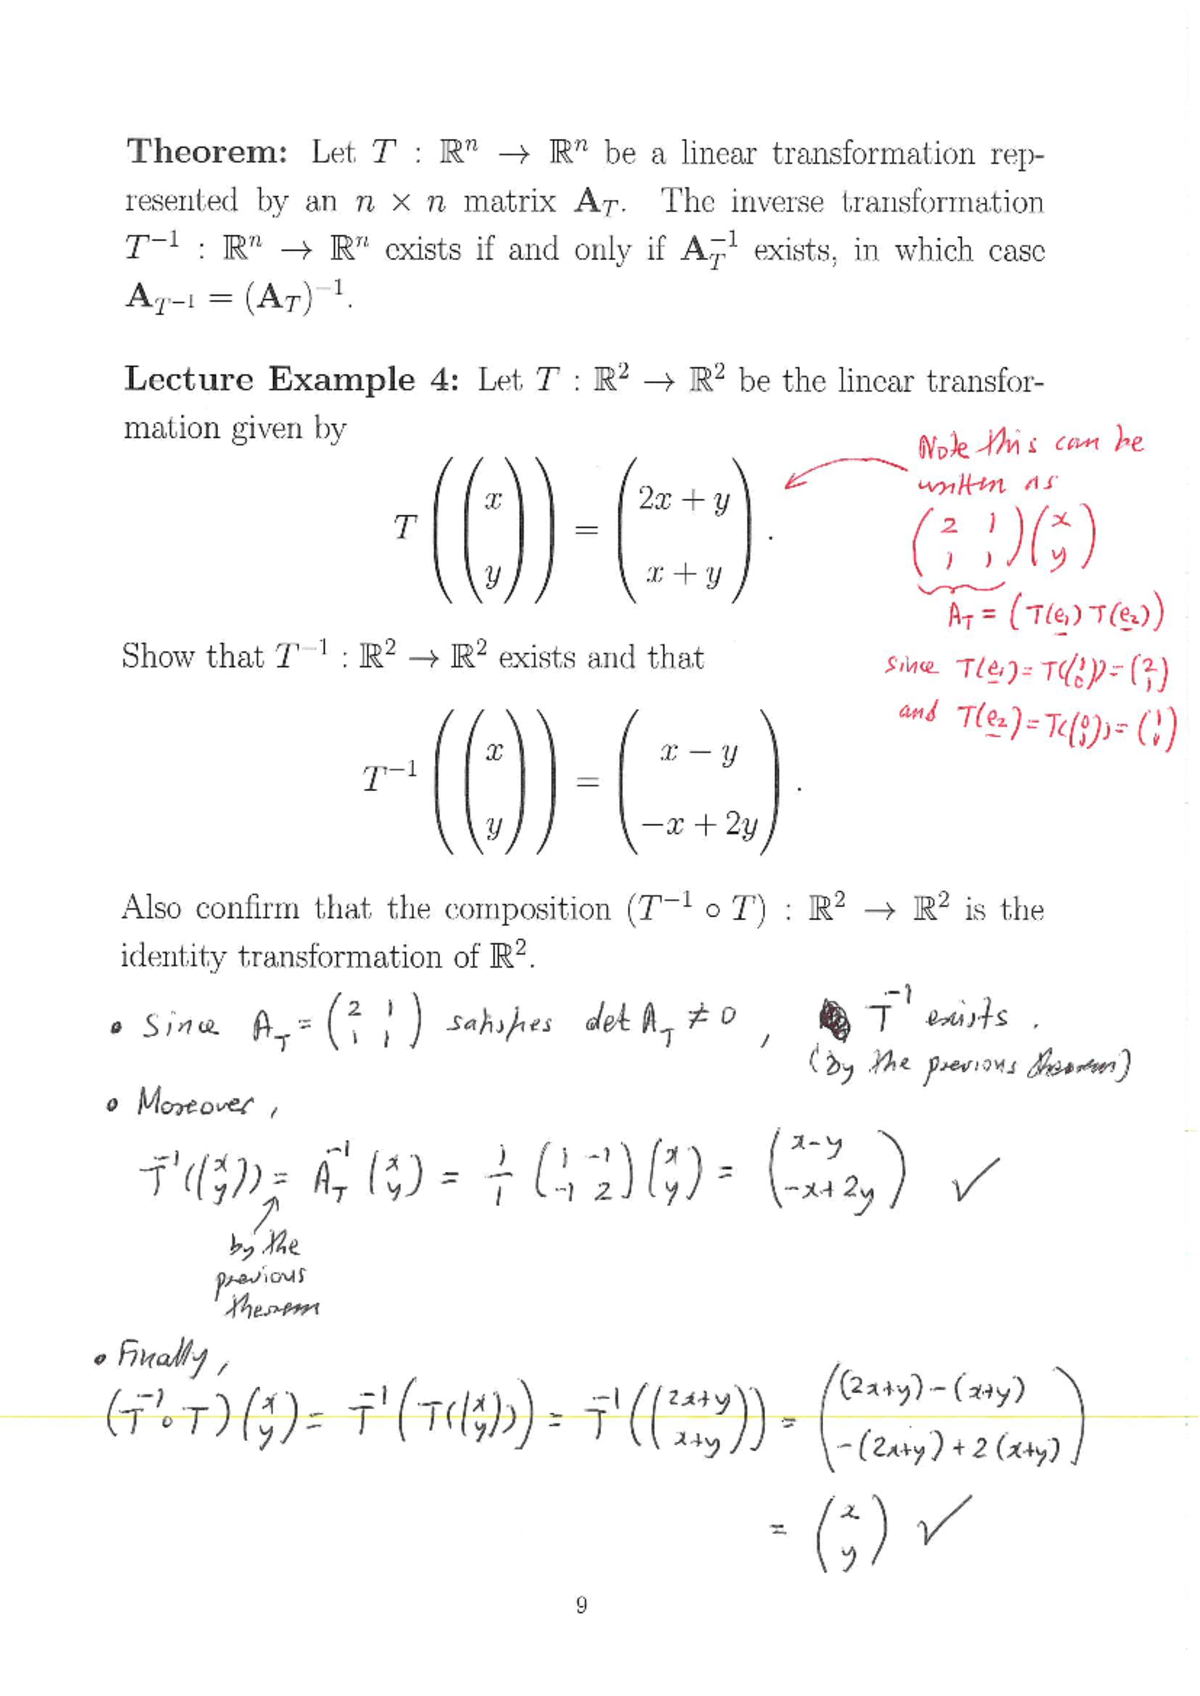 Theorem: Let T : ℝⁿ → ℝⁿ be a linear transformation rep-
resented by an n × n matrix A_T. The inverse transformation
T⁻¹ : ℝⁿ → ℝⁿ exists if and only if A_T⁻¹ exists, in which case
A_{T⁻¹} = (A_T)⁻¹.
Lecture Example 4: Let T : ℝ² → ℝ² be the linear transfor-
mation given by
T((x y)) = (2x + y x + y).
Note this can be
written as
(2 1 1 1)(x y)
A_T = (T(e₁) T(e₂))
since T(e₁) = T((1 0)) = (2 1)
and T(e₂) = T((0 1)) = (1 1)
Show that T⁻¹ : ℝ² → ℝ² exists and that
T⁻¹((x y)) = (x − y −x + 2y).
Also confirm that the composition (T⁻¹ ∘ T) : ℝ² → ℝ² is the
identity transformation of ℝ².
• Since A_T = (2 1 1 1) satisfies det A_T ≠ 0, T⁻¹ exists.
(by the previous theorem)
• Moreover,
T⁻¹((x y)) = A_T⁻¹ (x y) = 1/1 (1 −1 −1 2)(x y) = (x−y −x+2y) ✓
by the
previous
theorem
• Finally,
(T⁻¹∘T)(x y) = T⁻¹(T((x y))) = T⁻¹((2x+y x+y)) = ((2x+y)−(x+y) −(2x+y)+2(x+y))
= (x y) ✓
9